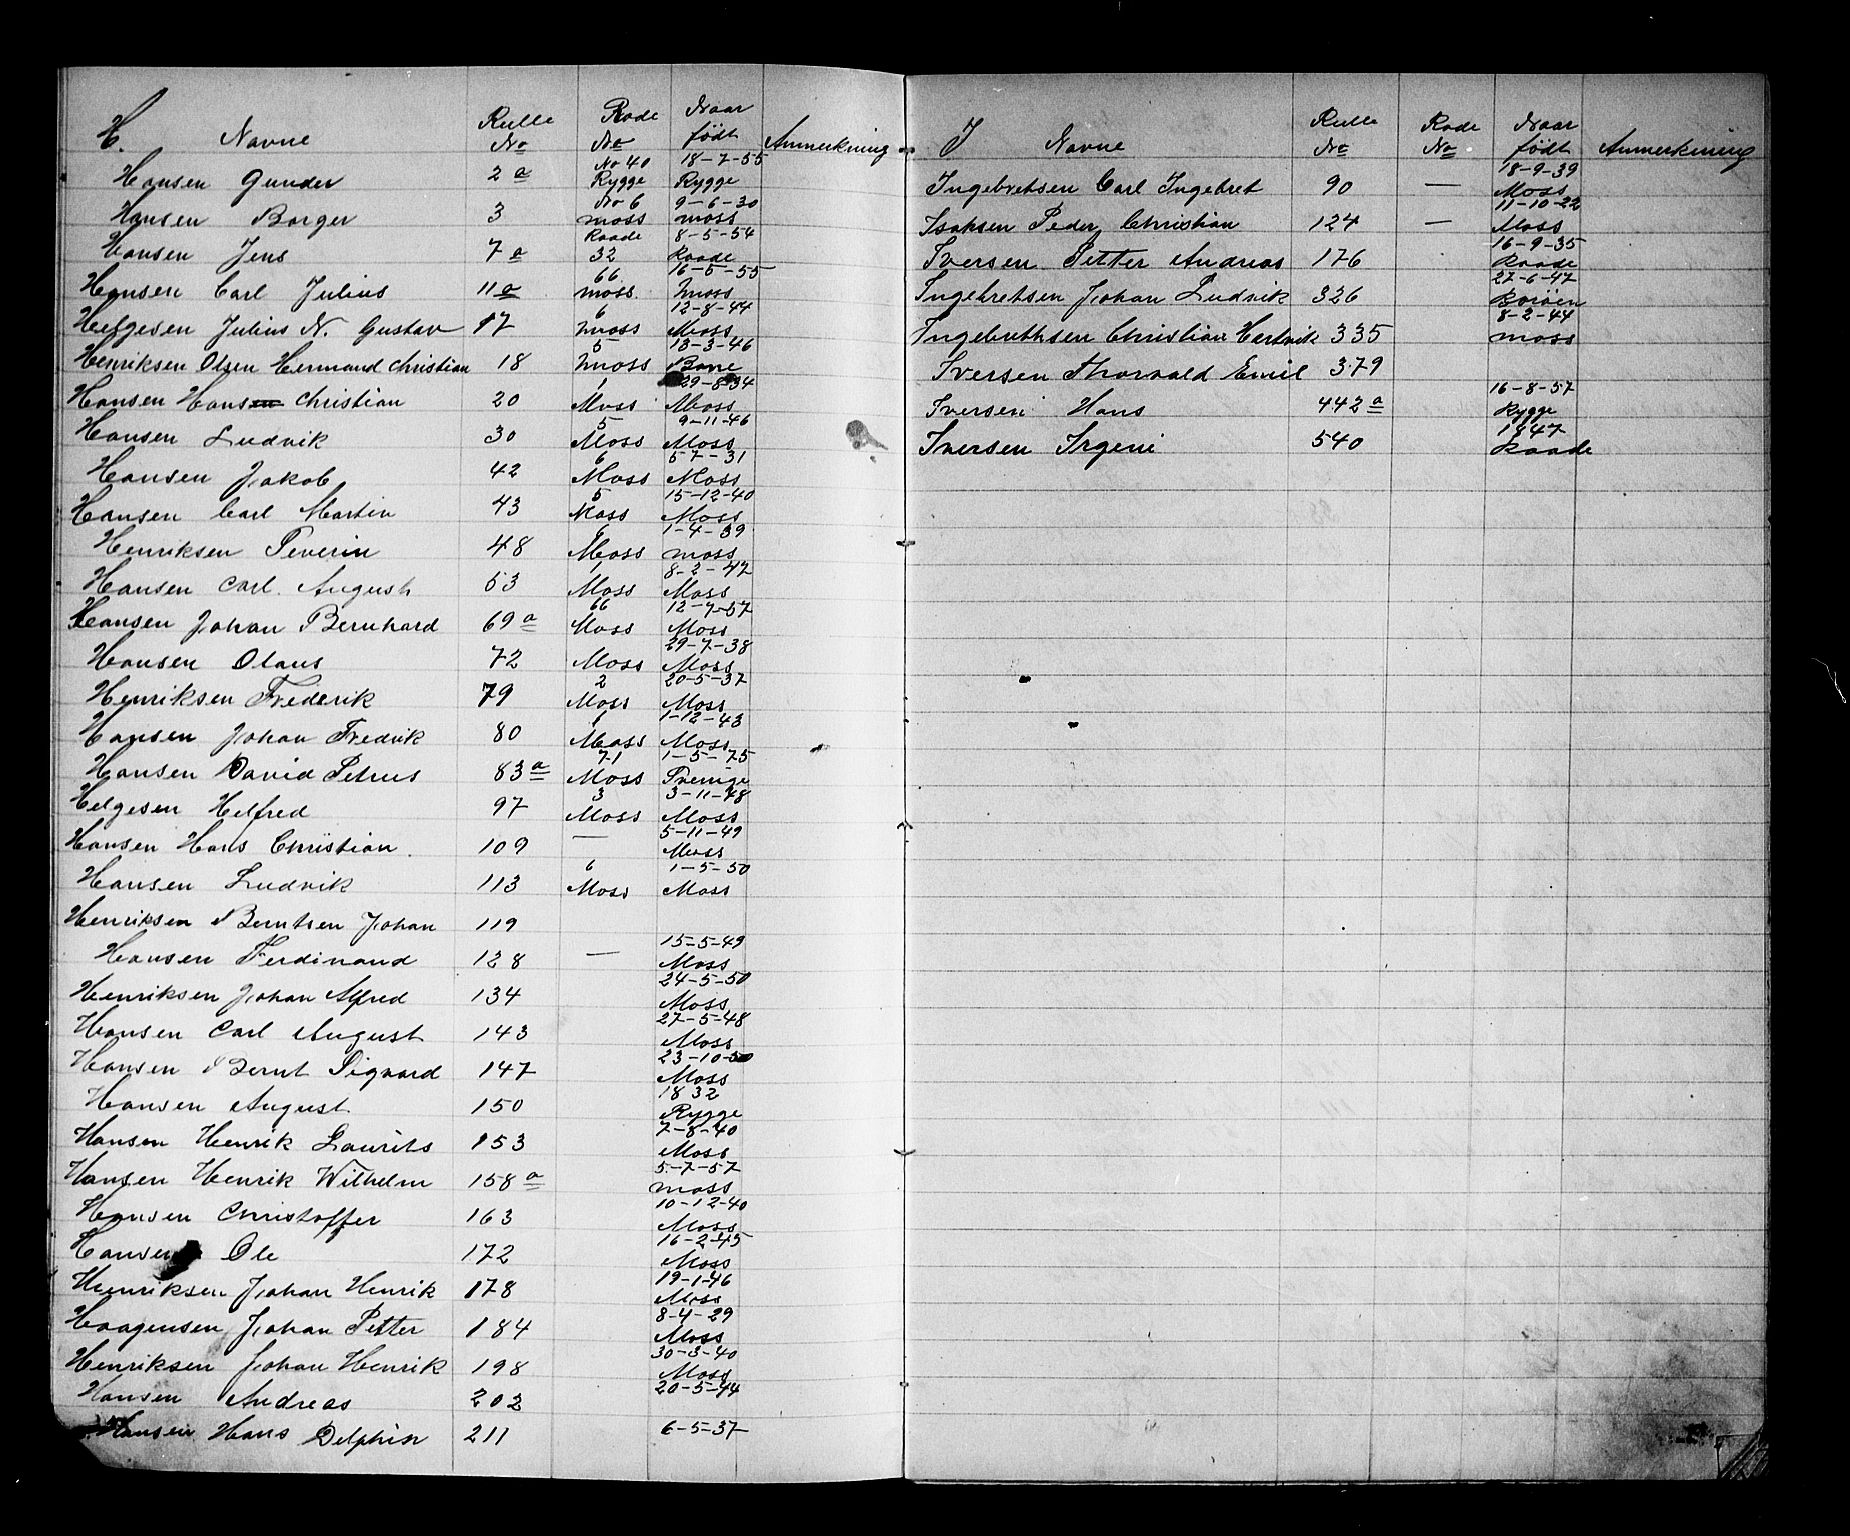 H. Navne Rulle No Rode No Naar født Anmerkning
Hansen Gunder 2a No 40 Rygge 18-7-55 Rygge
Hansen Borger 3 No 6 moss 9-6-30 moss
Hansen Jens 7a Raade 32 8-5-54 Raade
Hansen Carl Julius 11a 66 moss. 16-5-55 Moss
Helgesen Julius N. Gustav 17 6 moss 12-8-44 Moss
Henriksen Olsen Hermand Christian 18 5 Moss 13-3-46 Borre
Hansen Hans Christian 20 1 Moss 29-8-34 Moss
Hansen Ludvik 30 5 Moss 9-11-46 Moss
Hansen Jakob 42 6 Moss 5-7-31 Moss
Hansen Carl Martin 43 5 Moss 15-12-40 Moss
Henriksen Severin 48 6 Moss 1-4-39 moss
Hansen Carl. August 53 1 Moss 8-2-42 Moss
Hansen Johan Bernhard 69a 66 Moss 12-7-57 Moss
Hansen Olaus 72 Moss 29-7-38 Moss
Henriksen Frederik 79 2 Moss 20-5-37 Moss
Hansen Johan Fredrik 80 1 Moss 1-12-43 Moss
Hansen David Petrus 83a 71 Moss 1-5-75 Sverige
Helgesen Helfred 97 3 Moss 3-11-48 Moss
Hansen Hans Christian. 109 — 5-11-49 Moss
Hansen Ludvik 113 6 Moss 1-5-50 Moss
Henriksen Berntsen Johan 119
Hansen Ferdinand 128 — 15-5-49 Moss
Henriksen Johan Alfred 134 24-5-50 Moss
Hansen Carl August 143 27-5-48 Moss
Hansen Bernt Sigvard 147 23-10-50 Moss
Hansen August. 150 1832 Rygge
Hansen Henrik Laurits 153 7-8-40 Moss
Hansen Henrik Wilhelm 158a 5-7-57 moss
Hansen Christoffer 163 10-12-40 Moss
Hansen Ole 172 16-2-45 Moss
Henriksen Johan Henrik 178 19-1-46 Moss
Haagensen Johan Petter 184 8-4-29 Moss
Henriksen Johan Henrik 198 30-3-40 Moss
Hansen Andreas 202 20-5-44
Hansen Hans Delphin 211 6-5-37
I Navne Rulle No Rode No Naar født Anmerkning
Ingebretsen Carl Ingebret 90 — 18-9-39 Moss
Isaksen Peder Christian 124 — 11-10-22 Moss
Iversen Petter Andreas 176 16-9-35 Raade
Ingebretsen Johan Ludvik 326 27-6-47
Ingebrethsen Christian Hartvik 335 8-2-44 moss
Iversen Thorvald Emil 379
Iversen Hans 442a 16-8-57 Rygge
Iversen Irgeni 540 1847 Raade